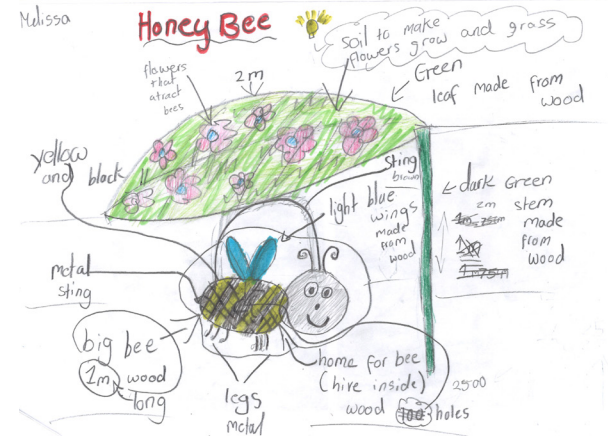 Melissa
Honey Bee
Soil to make
flowers grow and grass
flowers
that
atract
bees
2m
Green
leaf made from
wood
yellow
and black
sting
brown
light blue
wings
made
from
wood
dark Green
2m stem
made
from
wood
metal
sting
big bee
1m wood
long
legs
metal
home for bee
(hive inside)
wood
2500
holes